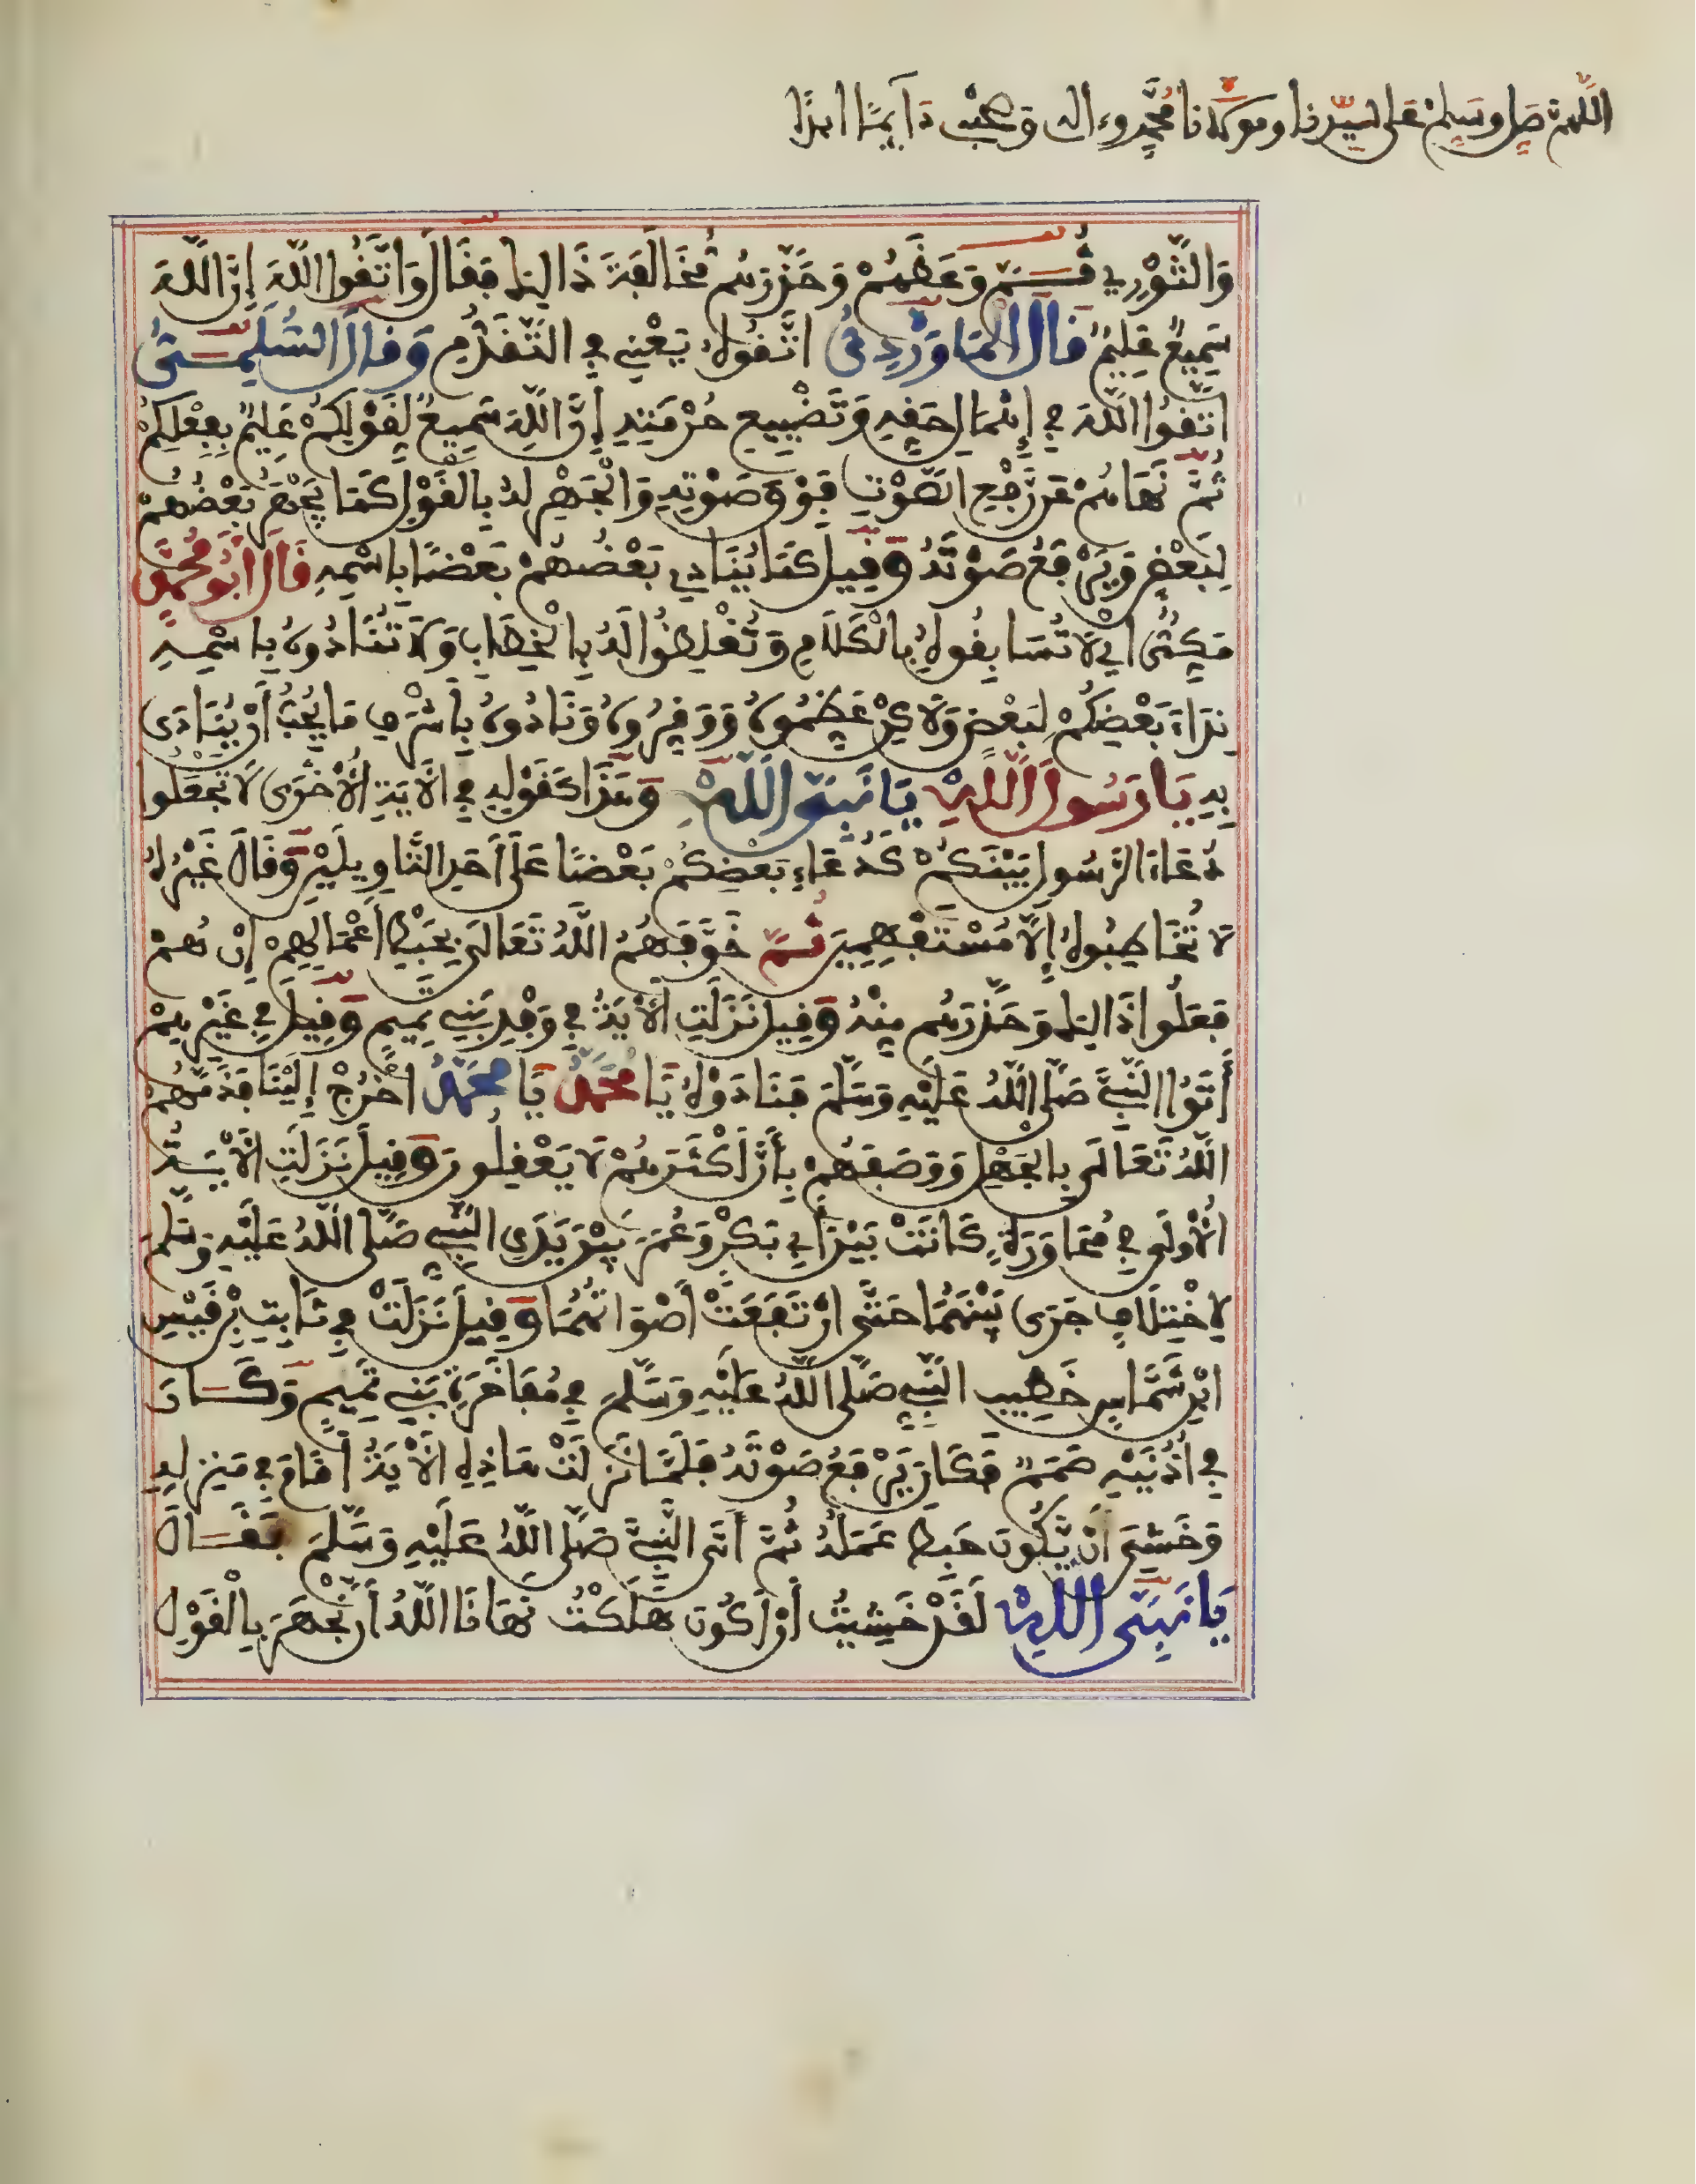 اللهم صل وسلم على سيدنا ومولانا محمد وءاله وصحبه دآيمًا ابدًا
وَالثَّوْرِي ثُمَّ وَعَظَهُمْ وَحَذَّرَهُم مُخَالَفَةَ ذَالِكَ فَقَالَ وَاتَّقُوا اللَّهَ إِنَّ اللَّهَ
سَمِيعٌ عَلِيمٌ قَالَ الْمَاوَرْدِيُّ اتَّقُوهُ يَعْنِي فِي التَّقَدُّمِ وَقَالَ السُّلَمِيُّ
اتَّقُوا اللَّهَ فِي إِهْمَالِ حَقِّهِ وَتَضْيِيعِ حُرْمَتِهِ إِنَّ اللَّهَ سَمِيعٌ لِقَوْلِكُمْ عَلِيمٌ بِفِعْلِكُمْ
ثُمَّ نَهَاهُمْ عَن رَّفْعِ الصَّوْتِ فَوْقَ صَوْتِهِ وَالْجَهْرِ لَهُ بِالْقَوْلِ كَمَا يَجْهَرُ بَعْضُهُمْ
لِبَعْضٍ وَيَرْفَعُ صَوْتَهُ وَقِيلَ كَمَا يُنَادِي بَعْضُهُمْ بَعْضًا بِاسْمِهِ قَالَ أَبُو مُحَمَّدٍ
مَكِّيٌّ أَيْ لَا تُسَابِقُوهُ بِالْكَلَامِ وَتُغْلِظُوا لَهُ بِالْخِطَابِ وَلَا تُنَادُوهُ بِاسْمِهِ
نِدَاءَ بَعْضِكُمْ لِبَعْضٍ وَلَاكِنْ عَظِّمُوهُ وَوَقِّرُوهُ وَنَادُوهُ بِأَشْرَفِ مَا يُحِبُّ أَنْ يُنَادَى
بِهِ يَا رَسُولَ اللَّهِ يَا نَبِيَّ اللَّهِ وَهَذَا كَقَوْلِهِ فِي الْآيَةِ الْأُخْرَى لَا تَجْعَلُوا
دُعَاءَ الرَّسُولِ بَيْنَكُمْ كَدُعَاءِ بَعْضِكُمْ بَعْضًا عَلَى أَحَدِ التَّأْوِيلَيْنِ وَقَالَ غَيْرُهُ
لَا تُخَاطِبُوهُ إِلَّا مُسْتَفْهِمِينَ ثُمَّ خَوَّفَهُمُ اللَّهُ تَعَالَى بِحَبْطِ أَعْمَالِهِمْ إِنْ هُمْ
فَعَلُوا ذَالِكَ وَحَذَّرَهُم مِنْهُ وَقِيلَ نَزَلَتِ الْآيَةُ فِي وَفْدِ بَنِي تَمِيمٍ وَقِيلَ فِي غَيْرِهِمْ
أَتَوُا النَّبِيَّ صَلَّى اللَّهُ عَلَيْهِ وَسَلَّمَ فَنَادَوْهُ يَا مُحَمَّدُ يَا مُحَمَّدُ اخْرُجْ إِلَيْنَا فَذَمَّهُمُ
اللَّهُ تَعَالَى بِالْجَهْلِ وَوَصَفَهُمْ بِأَنَّ أَكْثَرَهُمْ لَا يَعْقِلُونَ وَقِيلَ نَزَلَتِ الْآيَةُ
الْأُولَى فِي مُحَاوَرَةٍ كَانَتْ بَيْنَ أَبِي بَكْرٍ وَعُمَرَ بَيْنَ يَدَيِ النَّبِيِّ صَلَّى اللَّهُ عَلَيْهِ وَسَلَّمَ
لِاخْتِلَافٍ جَرَى بَيْنَهُمَا حَتَّى ارْتَفَعَتْ أَصْوَاتُهُمَا وَقِيلَ نَزَلَتْ فِي ثَابِتِ بْنِ قَيْسِ
ابْنِ شَمَّاسٍ خَطِيبِ النَّبِيِّ صَلَّى اللَّهُ عَلَيْهِ وَسَلَّمَ فِي مُفَاخَرَةِ بَنِي تَمِيمٍ وَكَانَ
فِي أُذُنَيْهِ صَمَمٌ فَكَانَ يَرْفَعُ صَوْتَهُ فَلَمَّا نَزَلَتْ هَاذِهِ الْآيَةُ أَقَامَ فِي مَنْزِلِهِ
وَخَشِيَ أَنْ يَّكُونَ حَبِطَ عَمَلُهُ ثُمَّ أَتَى النَّبِيَّ صَلَّى اللَّهُ عَلَيْهِ وَسَلَّمَ فَقَالَ
يَا نَبِيَّ اللَّهِ لَقَدْ خَشِيتُ أَنْ أَكُونَ هَلَكْتُ نَهَانَا اللَّهُ أَن نَّجْهَرَ بِالْقَوْلِ